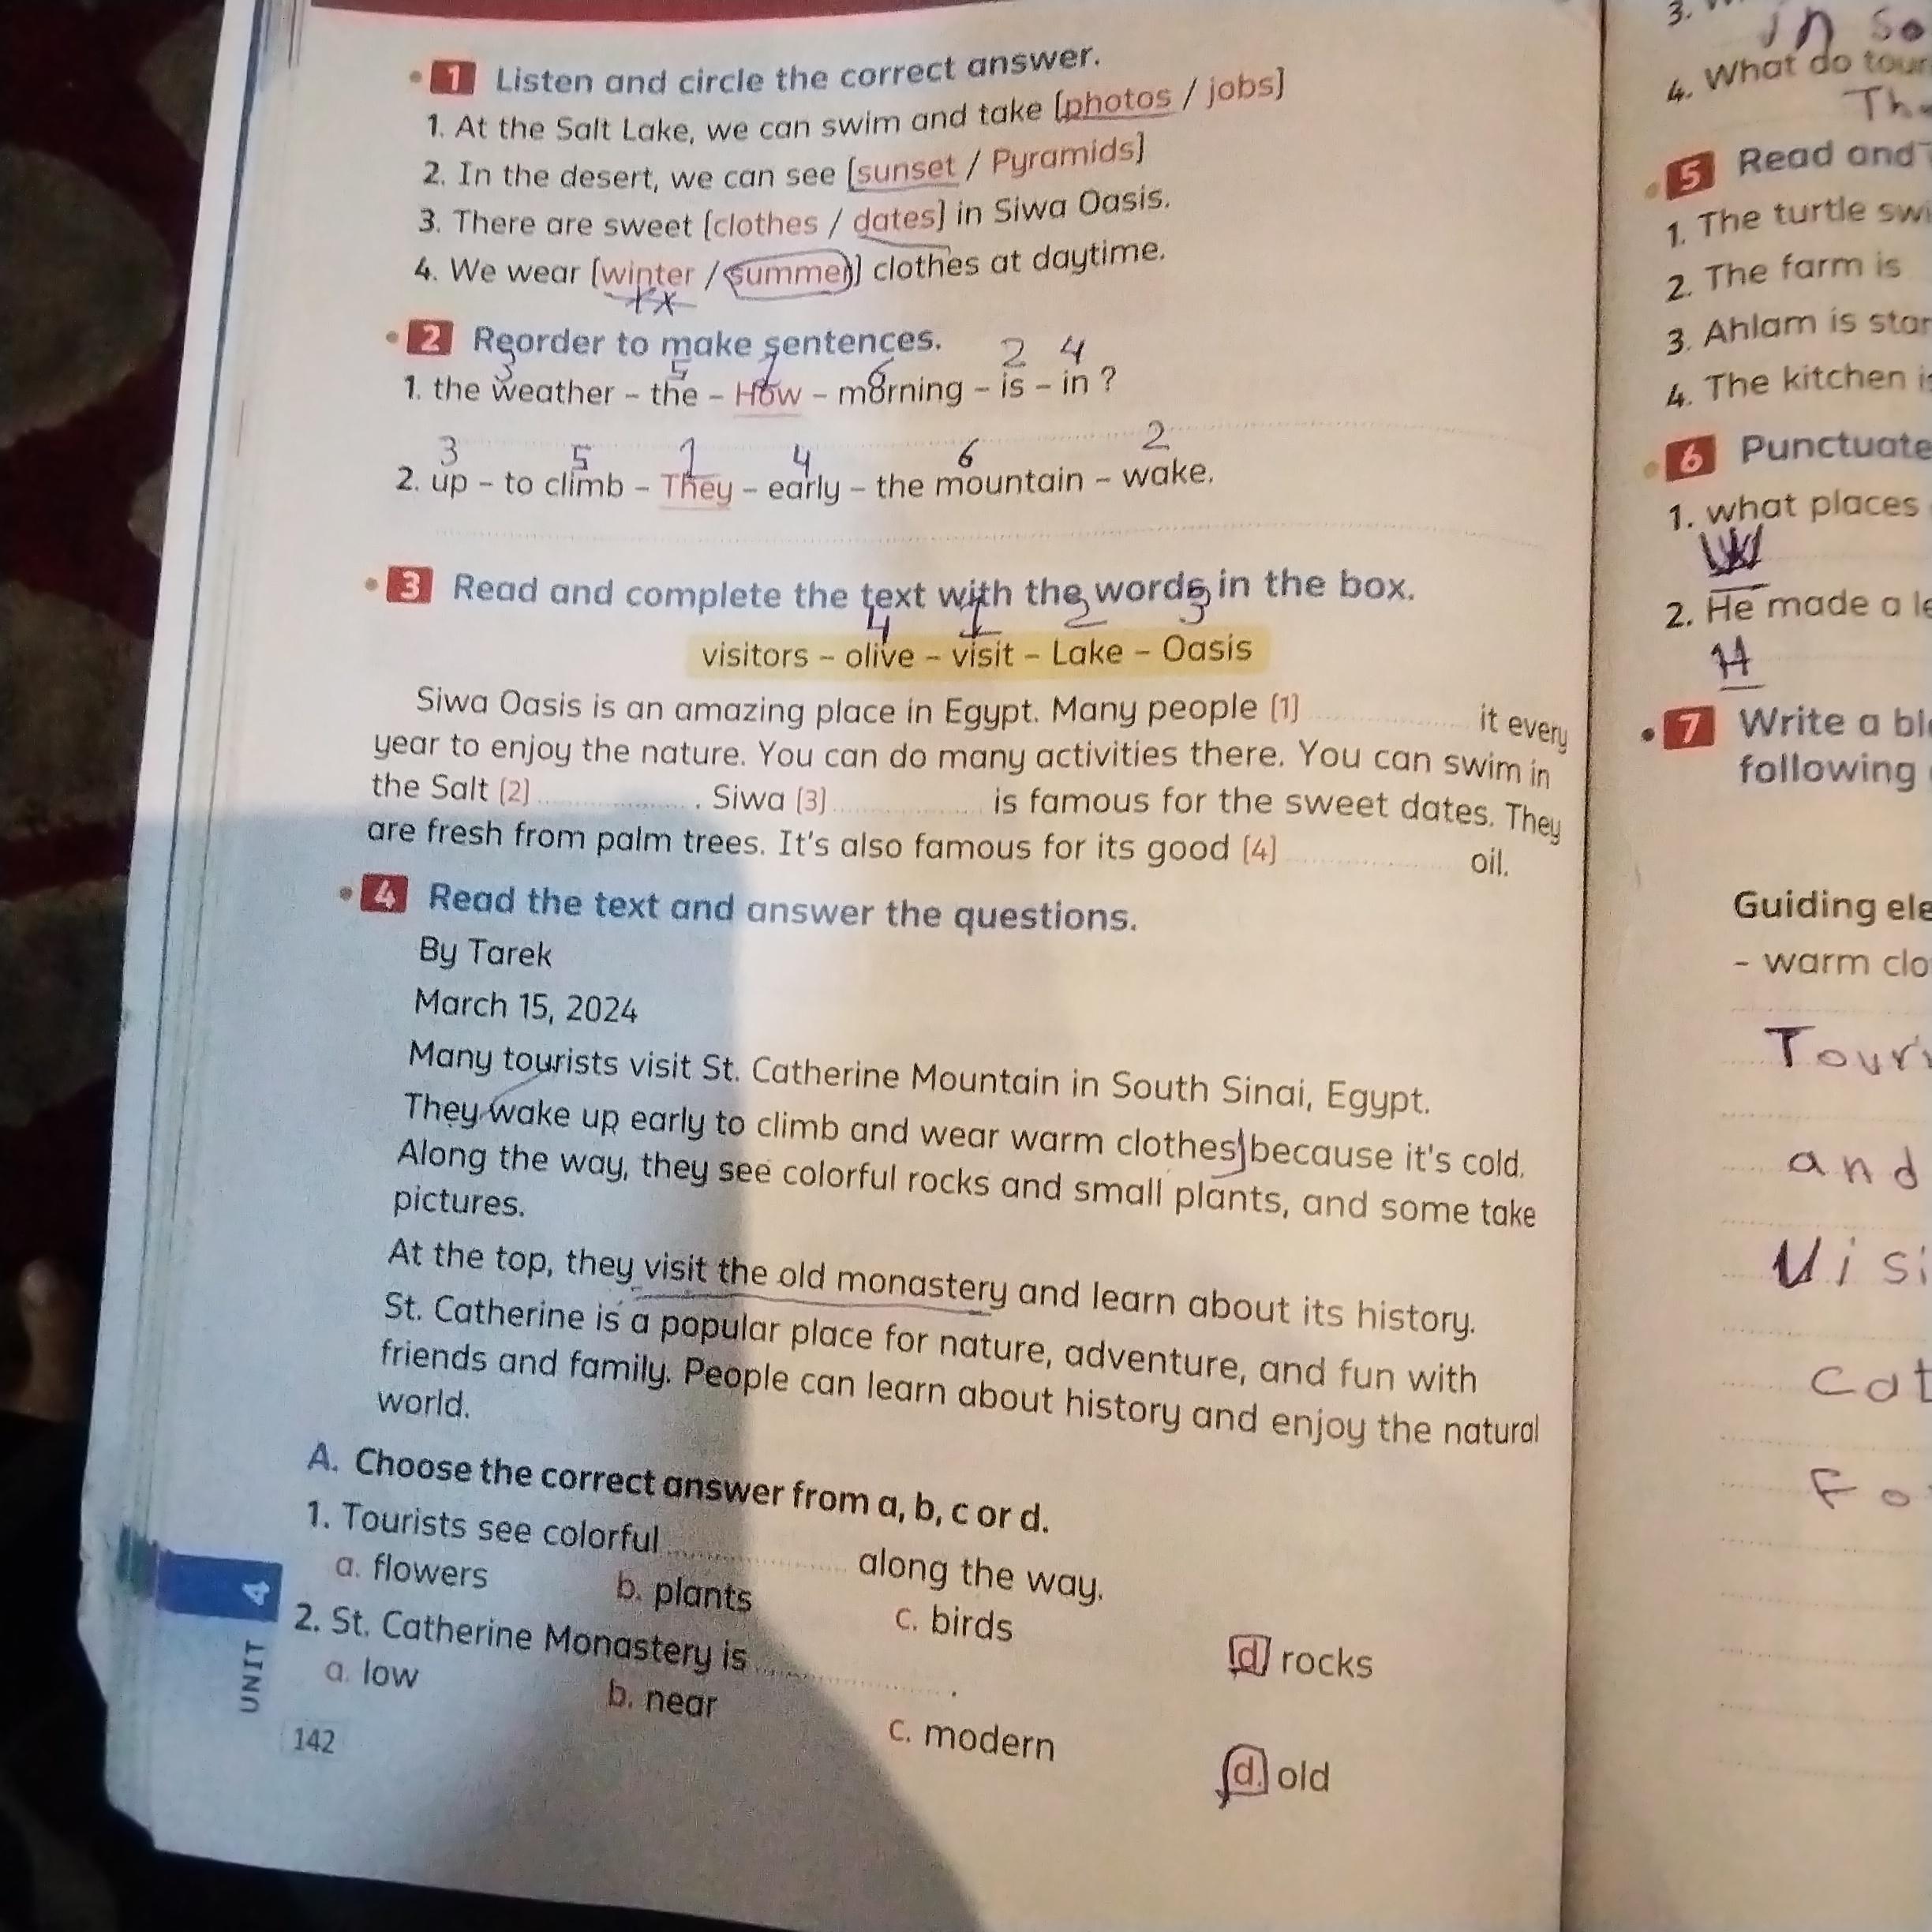 1 Listen and circle the correct answer.
1. At the Salt Lake, we can swim and take [photos / jobs]
2. In the desert, we can see [sunset / Pyramids]
3. There are sweet [clothes / dates] in Siwa Oasis.
4. We wear [winter / summer] clothes at daytime.
xx
2 Reorder to make sentences.
3 5 1 6 2 4
1. the weather – the – How – morning – is – in ?
3 5 1 4 6 2
2. up – to climb – They – early – the mountain – wake.
3 Read and complete the text with the words in the box.
4 1 2 3
visitors – olive – visit – Lake – Oasis
Siwa Oasis is an amazing place in Egypt. Many people (1) it every
year to enjoy the nature. You can do many activities there. You can swim in
the Salt (2) . Siwa (3) is famous for the sweet dates. They
are fresh from palm trees. It's also famous for its good (4) oil.
4 Read the text and answer the questions.
By Tarek
March 15, 2024
Many tourists visit St. Catherine Mountain in South Sinai, Egypt.
They wake up early to climb and wear warm clothes because it's cold.
Along the way, they see colorful rocks and small plants, and some take
pictures.
At the top, they visit the old monastery and learn about its history.
St. Catherine is a popular place for nature, adventure, and fun with
friends and family. People can learn about history and enjoy the natural
world.
A. Choose the correct answer from a, b, c or d.
1. Tourists see colorful along the way.
a. flowers b. plants c. birds d. rocks
2. St. Catherine Monastery is .
a. low b. near c. modern d. old
UNIT 4
142
3.
in so
4. What do tour
Th
5 Read and
1. The turtle swi
2. The farm is
3. Ahlam is star
4. The kitchen i
6 Punctuate
1. what places
W
2. He made a le
H
7 Write a bl
following
Guiding ele
– warm clo
Touri
and
Visi
cat
Fo